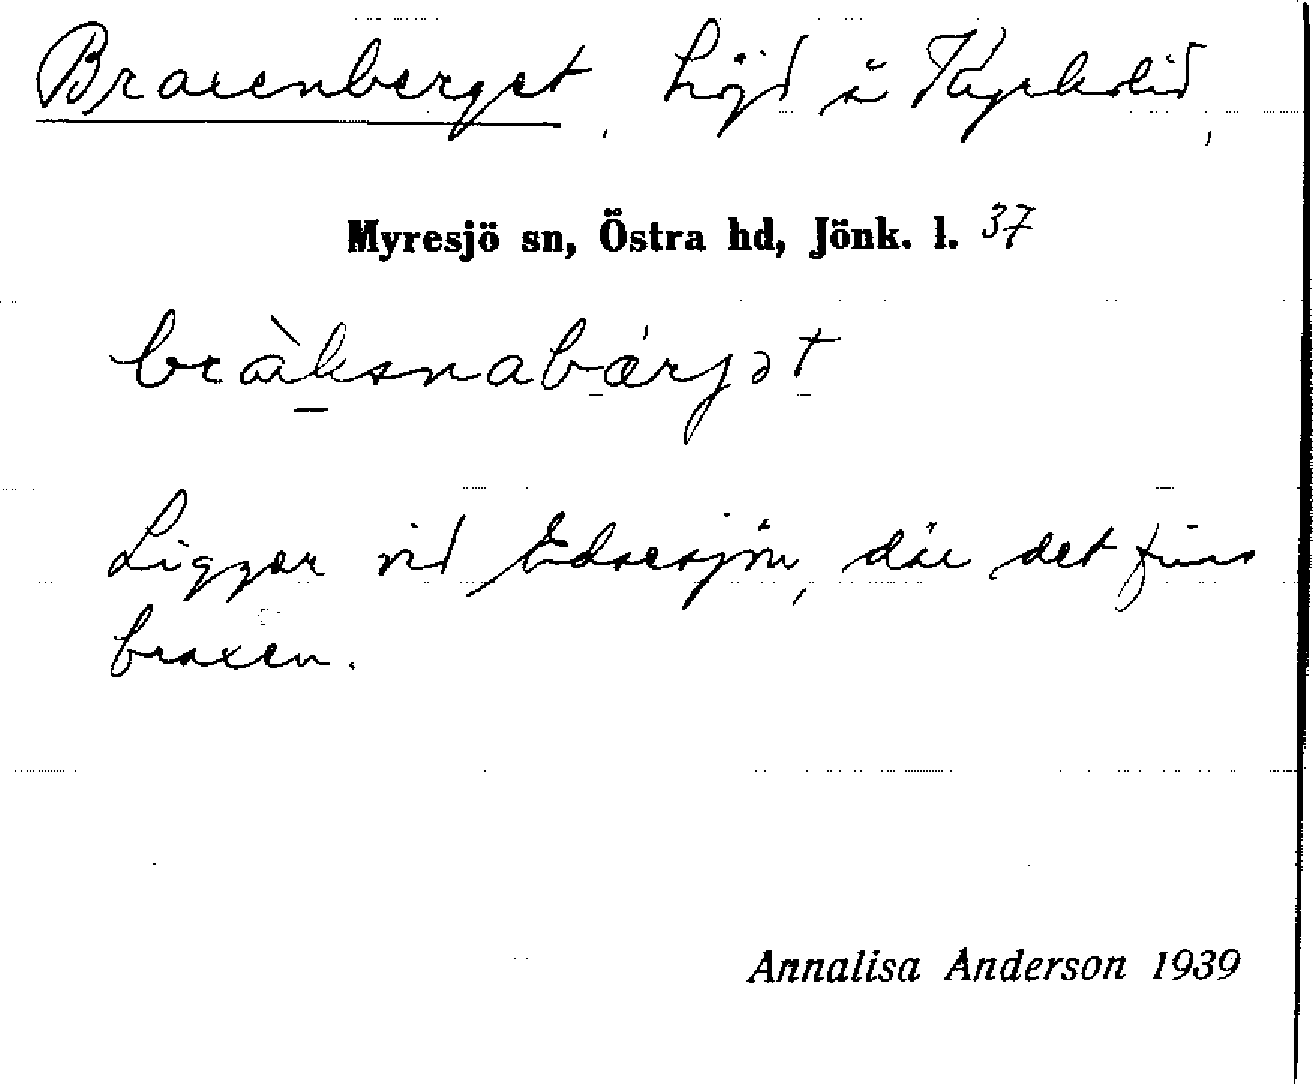 Braxenberget, höjd å Kyrkolid,
Myresjö sn, Östra hd, Jönk. l. 37
bràksnabærjət
Ligger vid Edssesjön, där det finns
braxen.
Annalisa Anderson 1939